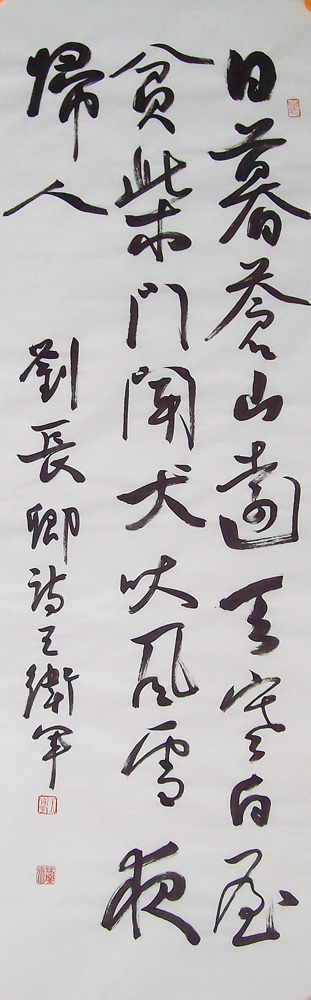 日暮蒼山遠天寒白屋
貧柴門聞犬吠風雪夜
歸人
劉長卿詩王衛軍